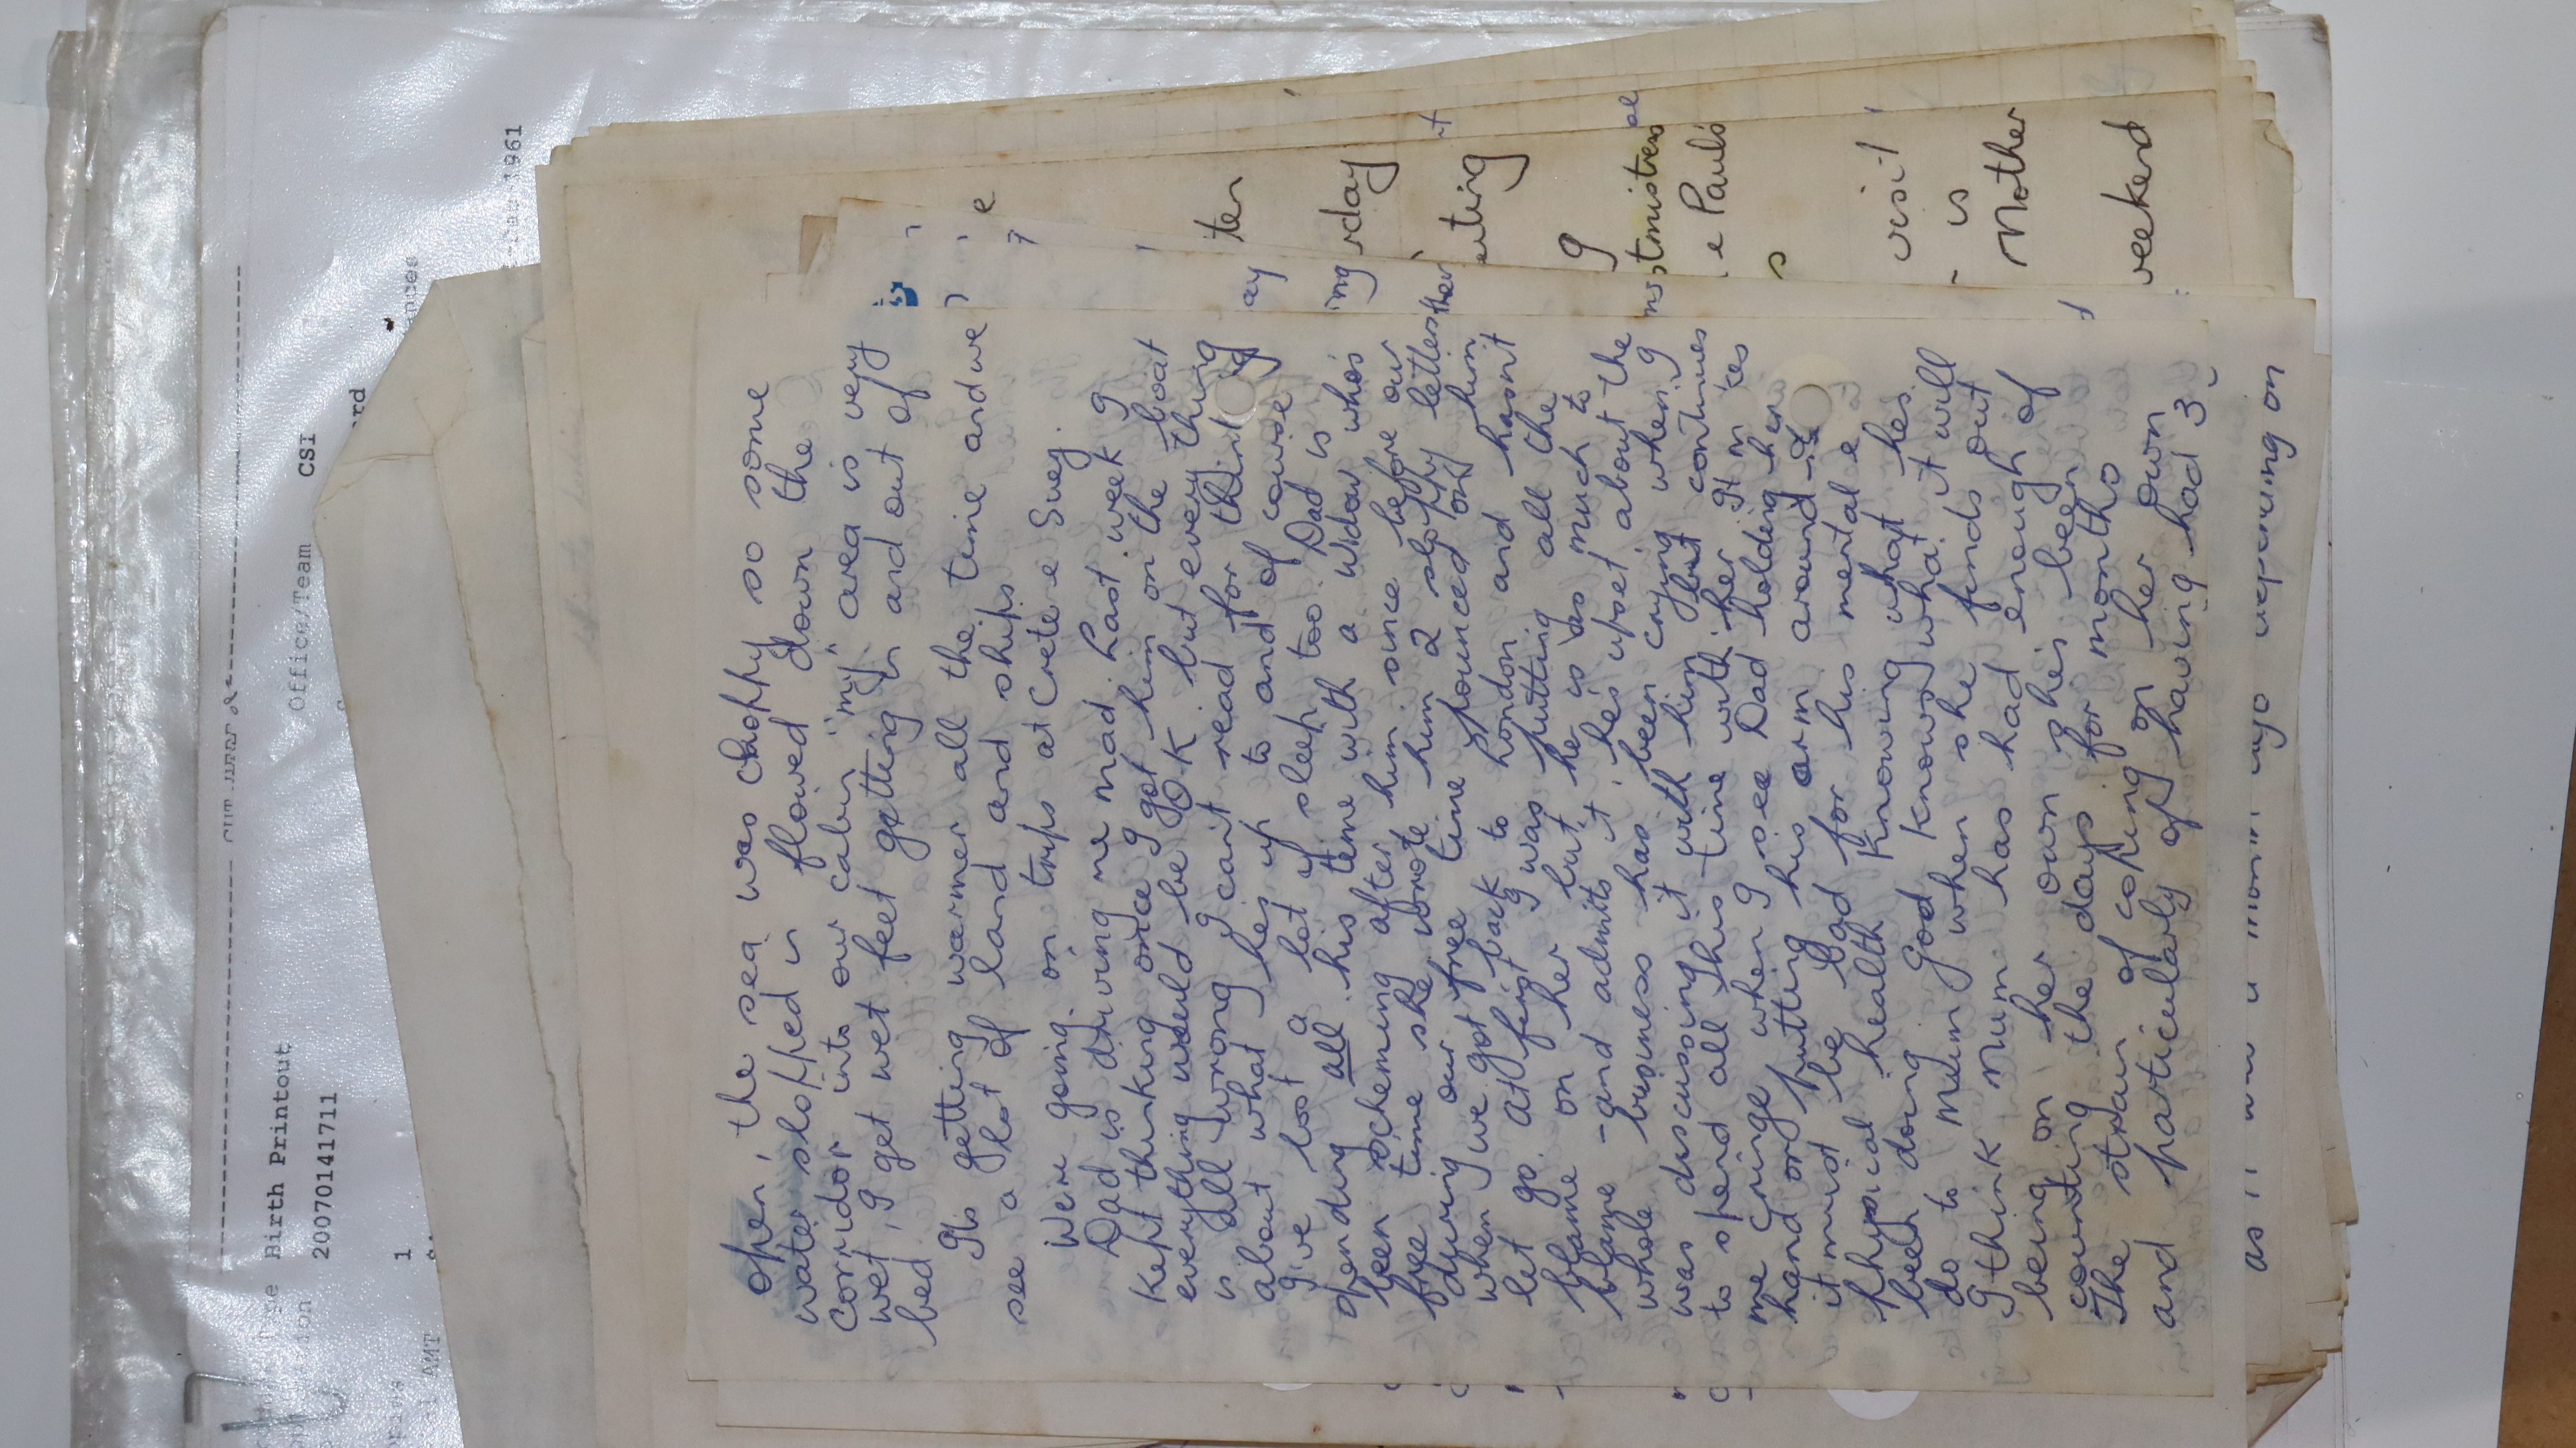 Birth Printout
Office/Team CSI
20070141711
1
1961
open, the sea was choppy so some
water slopped in flowed down the
corridor into our cabin "my" area is very
wet, I get wet feet getting in and out of
bed
Its getting warmer all the time and we
see a lot of land and ships
Were going on trips at Crete & Suez.
Dad is driving me mad. Last week I
kept thinking once I got him on the boat
everything would be OK but everything
is all wrong I can't read for thinking
about what he's up to and of course
I've lost a lot of sleep too. Dad is
spending all his time with a widow who's
been scheming after him since before our
free time she wrote him 2 sloppy letters
during our free time pounced on him
when we got back to London and hasn't
let go. At first I was putting all the
blame on her but he is as much to
blame - and admits it, he's upset about the
whole business has been crying when I
was discussing it with him but continues
to spend all his time with her. It
me cringe when I see Dad holding her
hand or putting his arm around
it must be bad for his mental &
physical health knowing what he's
been doing. God knows what it will
do to Mum when she finds out
I think Mum has had enough of
being on her own she's been
counting the days for months
The strain of coping on her own
and particularly of having had 3
ter
day
ay
ing
then
I
stmister
e Paul's
s
visit
is
Mother
weekend